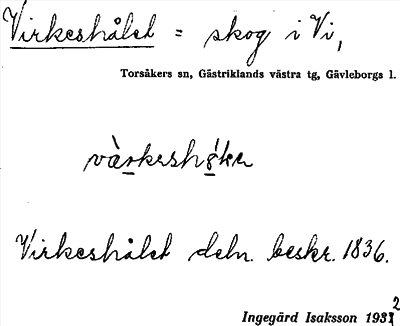 Virkeshålet = skog i Vi,
Torsåkers sn, Gästriklands västra tg, Gävleborgs l.
Virkeshålet deln. beskr. 1836.
Ingegärd Isaksson 1932